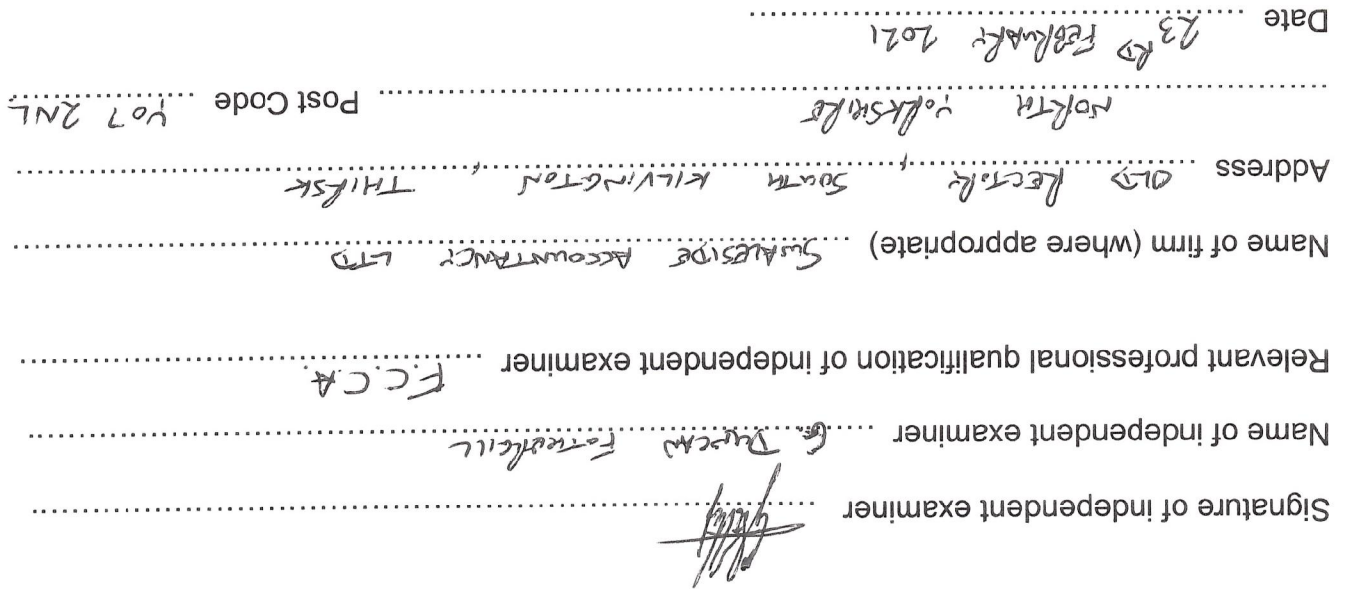 Signature of independent examiner
Name of independent examiner G. DUNCAN FOTHERGILL
Relevant professional qualification of independent examiner F.C.C.A.
Name of firm (where appropriate) SWALESIDE ACCOUNTANCY LTD
Address OLD RECTORY, SOUTH KILVINGTON, THIRSK
NORTH YORKSHIRE Post Code YO7 2NL
Date 23RD FEBRUARY 2021